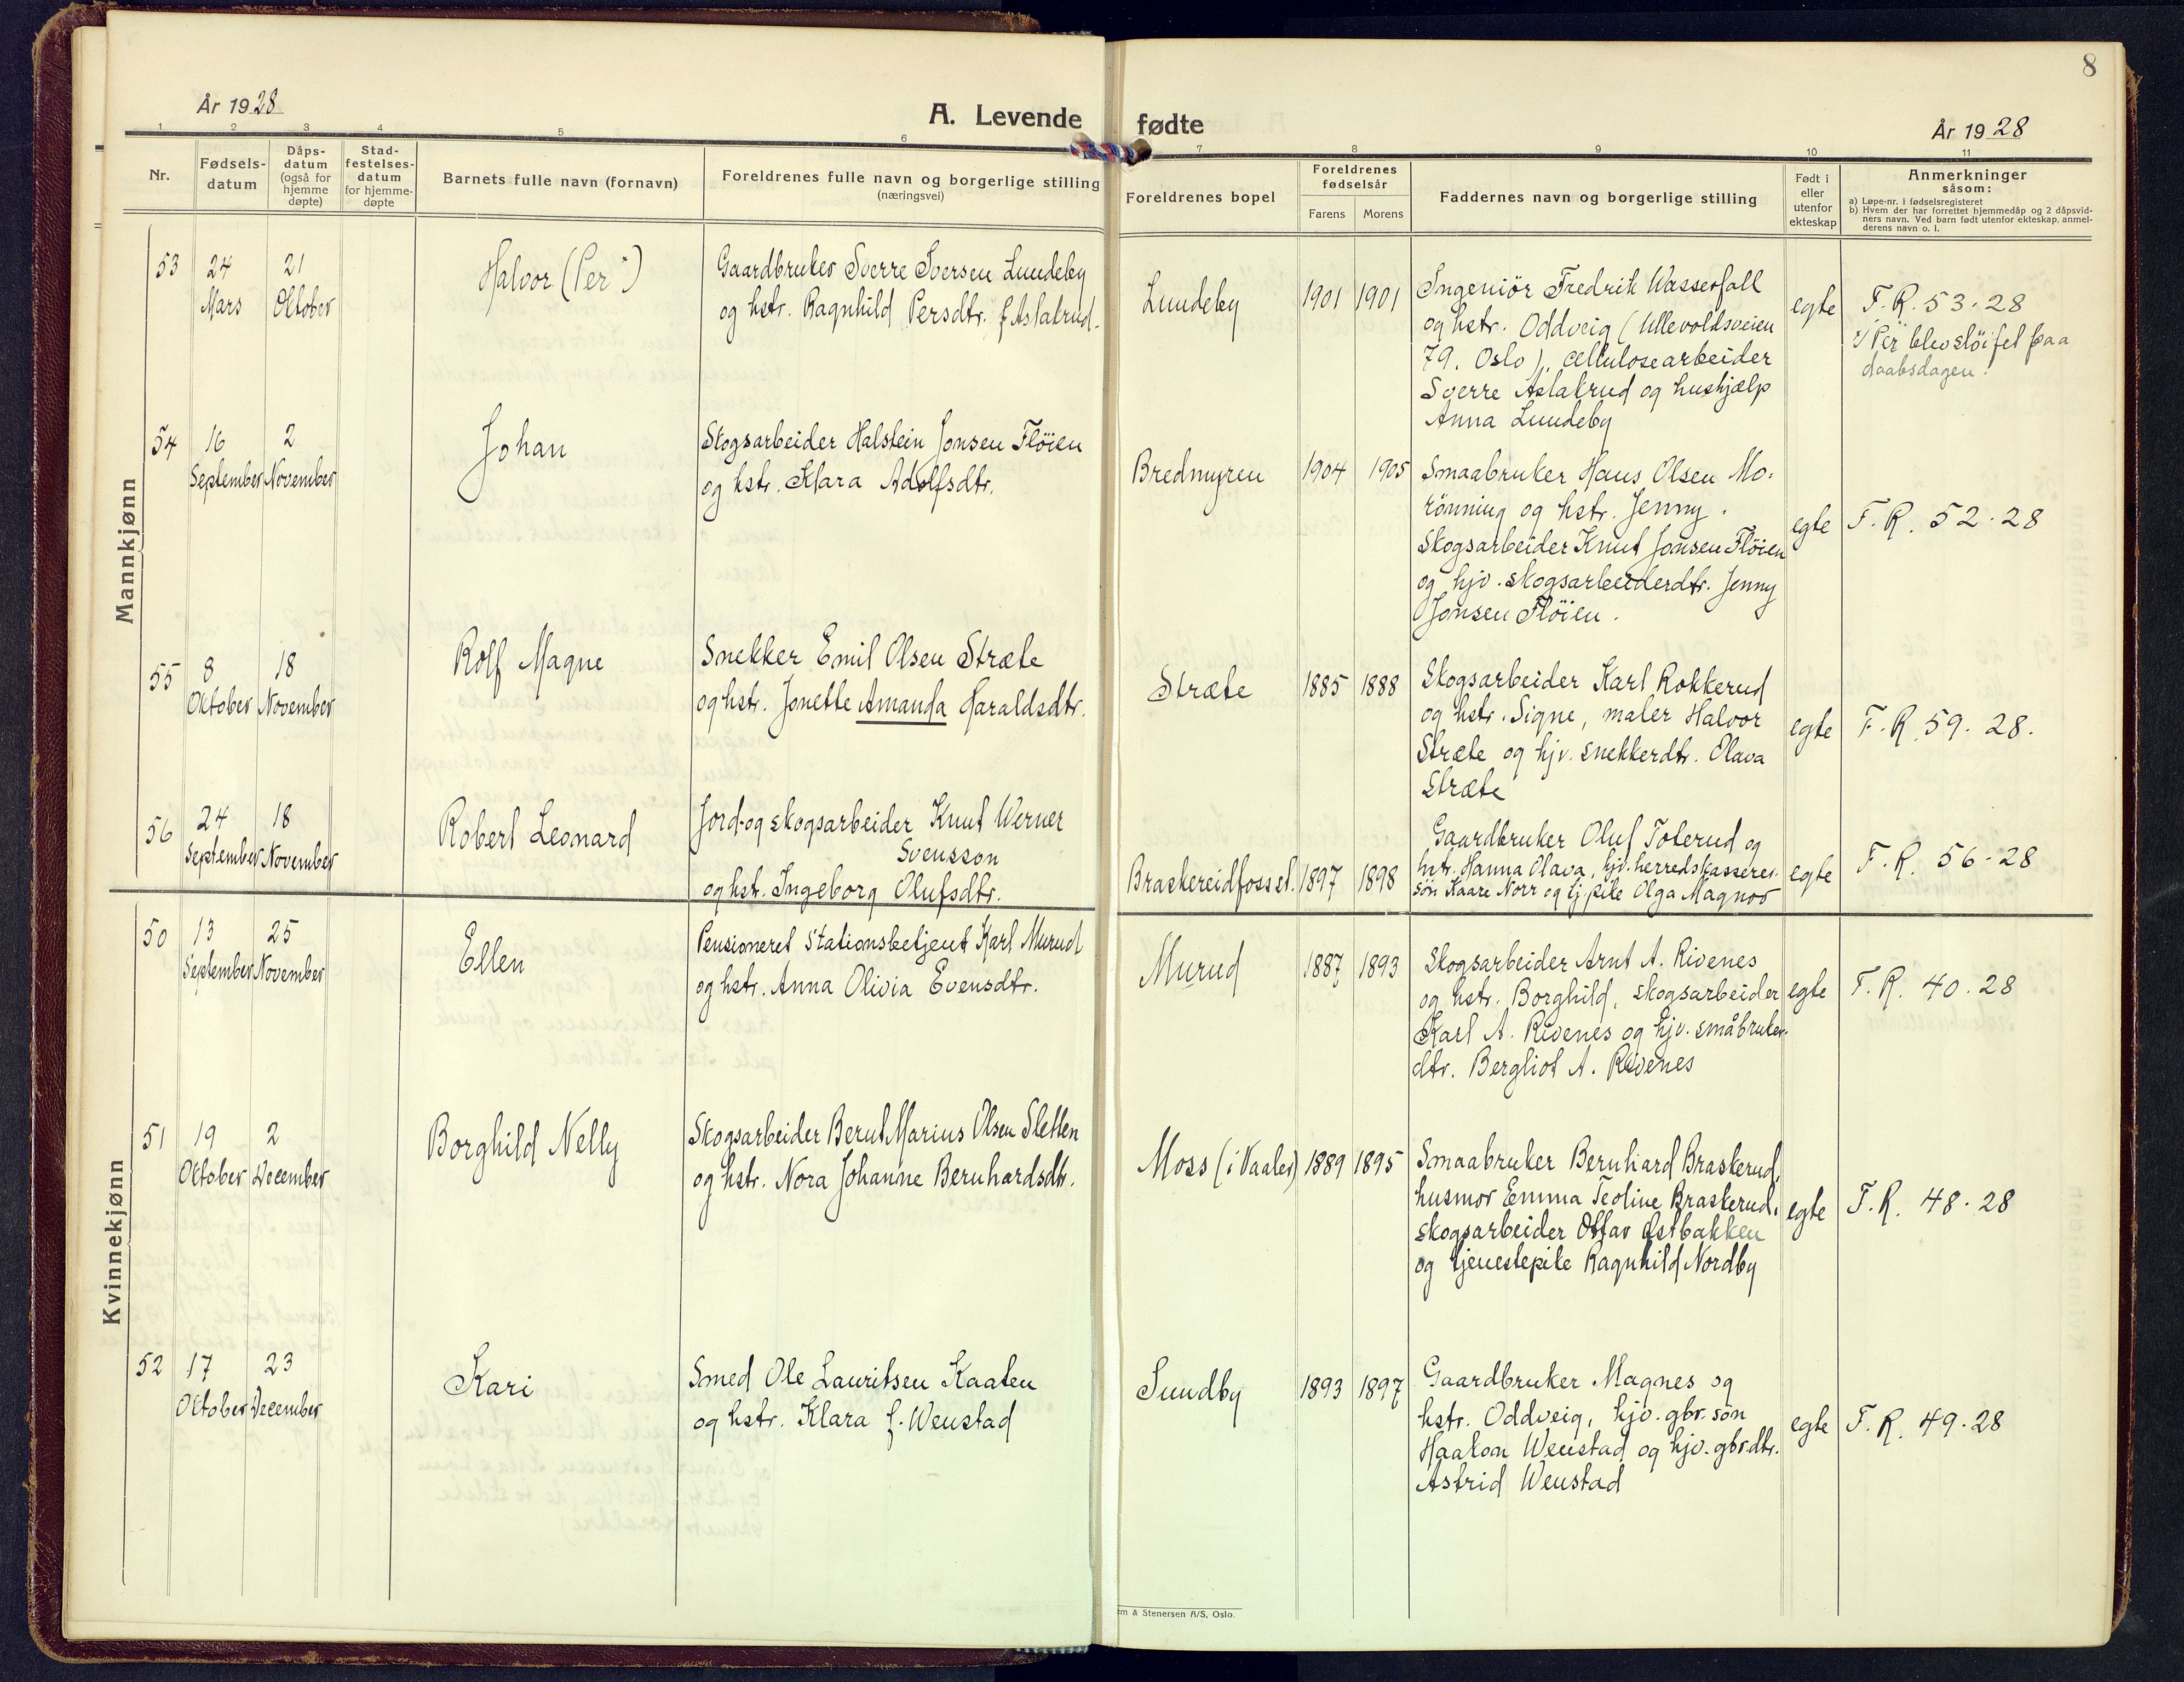 År 1928
A. Levende
1 2 3 4 5 6
Nr.
Fødsels-
datum
Dåps-
datum
(også for
hjemme
døpte)
Stad-
festelses-
datum
for hjemme-
døpte
Barnets fulle navn (fornavn)
Foreldrenes fulle navn og borgerlige stilling
(næringsvei)
Mannkjønn
53 24 21 Halvor (Per*) Gaardbruker Sverre Iversen Lundeby
Mars Oktober og hstr. Ragnhild Persdtr. f. Aslakrud.
54 16 2 Johan Skogsarbeider Halstein Jonsen Flöien
September November og hstr. Klara Adolfsdtr.
55 8 18 Rolf Magne Snekker Emil Olsen Stræte
Oktober November og hstr. Jonette Amanda Haraldsdtr.
56 24 18 Robert Leonard Jord-og skogsarbeider Knut Werner
September November Svensson
og hst. Ingeborg Olufsdtr.
Kvinnekjønn
50 13 25 Ellen Pensioneret Stationsbetjent Karl Murud
September November og hstr. Anna Olivia Evensdtr.
51 19 2 Borghild Nelly Skogsarbeider Bernt Marius Olsen Sletten
Oktober December og hstr. Nora Johanne Bernhardsdtr.
52 17 23 Kari Smed Ole Lauritsen Kaaten
Oktober December og hstr. Klara f. Wenstad
8
fødte
År 1928
7 8 9 10 11
Foreldrenes bopel
Foreldrenes
fødselsår
Farens Morens
Faddernes navn og borgerlige stilling
Født i
eller
utenfor
ekteskap
Anmerkninger
såsom:
a) Løpe-nr. i fødselsregisteret
b) Hvem der har forrettet hjemmedåp og 2 dåpsvid-
ners navn. Ved barn født utenfor ekteskap, anmel-
derens navn o. l.
Lundeby 1901 1901 Ingeniör Fredrik Wasserfall
og hstr. Oddveig (Ullevoldsveien
79. Oslo), cellulosearbeider
Sverre Aslakrud og hushjælp
Anna Lundeby
egte F. R. 53-28
*/ Per blev slöifet paa
daabsdagen!
Bredmyren 1904 1905 Smaabruker Hans Olsen Mo-
rönning og hstr. Jenny.
Skogsarbeider Knut Jonsen Flöien
og hjv. skogsarbeiderdtr. Jenny
Jonsen Flöien.
egte F. R. 52-28
Stræte 1885 1888 Skogsarbeider Karl Rokkerud
og hstr. Signe, maler Halvor
Stræte og hjv. snekkerdtr. Olava
Stræte
egte F. R. 59-28.
Braskereidfoss st. 1897 1898 Gaardbruker Oluf Toterud og
hstr. Hanna Olava, hjv. herredskasserer-
sön Kaare Norr og tj.pike Olga Magnor
egte F. R. 56-28
Murud 1887 1893 Skogsarbeider Arnt A. Rivenes
og hstr. Borghild, skogsarbeider
Karl A. Rivenes og hjv. småbruker-
dtr. Bergliot A. Rivenes
egte F. R. 40-28
Moss (i Vaaler) 1889 1895 Smaabruker Bernhard Braskerud,
husmor Emma Teoline Braskerud,
skogsarbeider Ottar Østbakken
og tjenestepike Ragnhild Nordby
egte F. R. 48-28
Sundby 1893 1897 Gaardbruker Magnes og
hstr. Oddveig, hjv. gbr.sön
Haakon Wenstad og hjv. gbr.dtr.
Astrid Wenstad
egte F. R. 49-28
em & Stenersen A/S, Oslo.